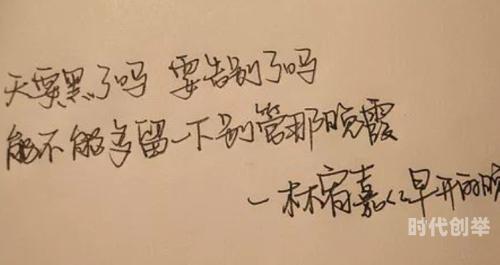 天要黑了吗 要告别了吗
能不能多留一下别管那晚霞
—林宥嘉《早开的晚
时代创举